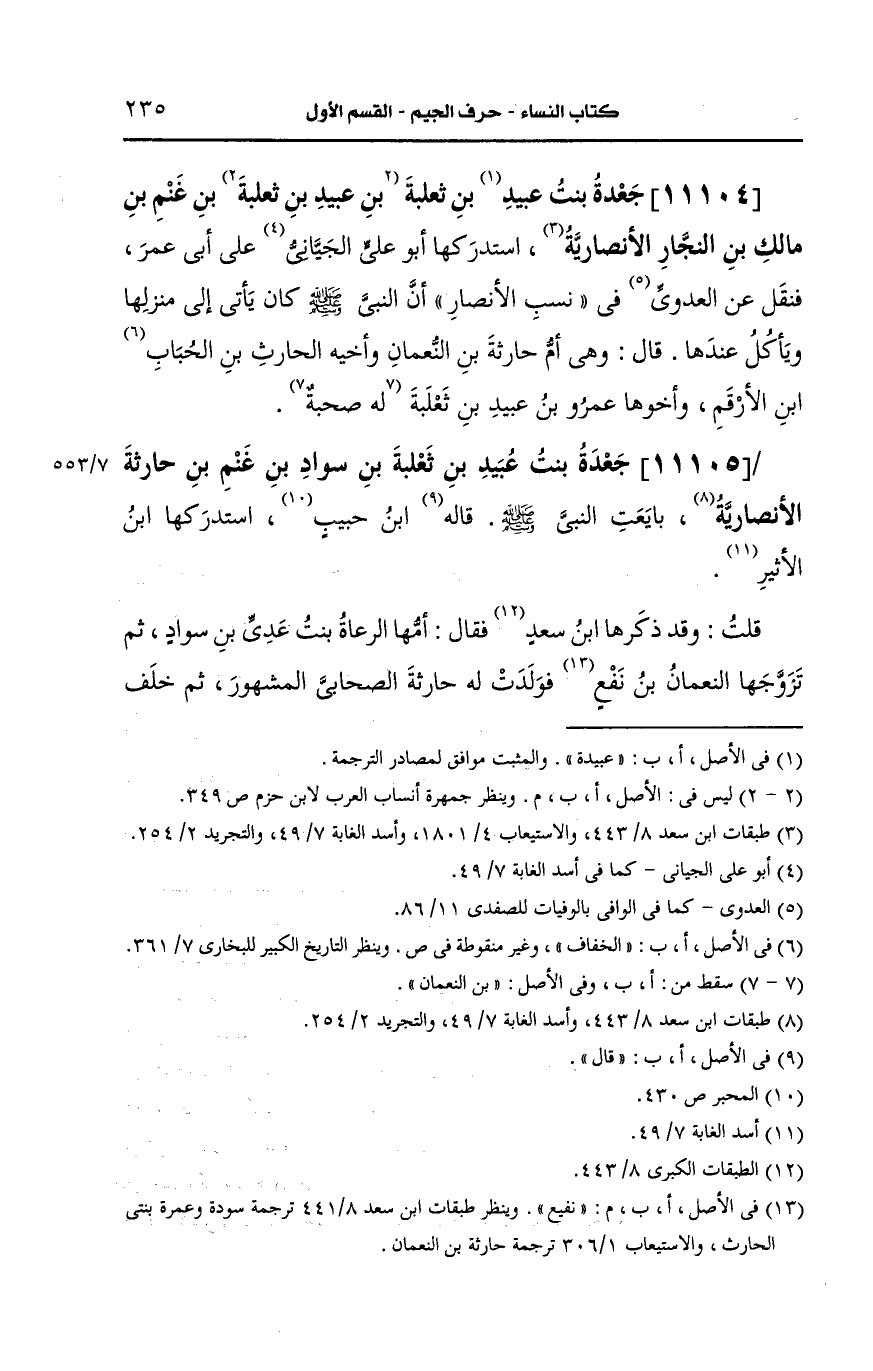 كتاب النساء - حرف الجيم - القسم الأول ٢٣٥
[١١١٠٤] جَعْدةُ بنتُ عبيدِ(١) بنِ ثعلبةَ (٢بنِ عبيدِ بنِ ثعلبةَ٢) بنِ غَنْمِ بنِ
مالكِ بنِ النجَّارِ الأنصاريَّةُ(٣) ، استدرَكها أبو علىٍّ الجَيَّانِىُّ(٤) على أبى عمرَ ،
فنقَل عن العدوىِّ(٥) فى « نسبِ الأنصارِ » أنَّ النبىَّ ﷺ كان يَأتى إلى منزلِها
ويَأكُلُ عندَها . قال : وهى أمُّ حارثةَ بنِ النُّعمانِ وأخيه الحارثِ بنِ الحُبَابِ(٦)
ابنِ الأرْقَمِ ، وأخوها عمرُو بنُ عبيدِ بنِ ثَعْلَبةَ (٧له صحبةٌ٧) .
/[١١١٠٥] جَعْدَةُ بنتُ عُبَيدِ بنِ ثَعْلبةَ بنِ سوادِ بنِ غَنْمِ بنِ حارثةَ ٥٥٣/٧
الأنصاريَّةُ(٨) ، بايَعَتِ النبىَّ ﷺ . قاله(٩) ابنُ حبيبٍ(١٠) ، استدرَكها ابنُ
الأثيرِ(١١) .
قلتُ : وقد ذكَرها ابنُ سعدٍ(١٢) فقال : أمُّها الرعاةُ بنتُ عَدِىِّ بنِ سوادٍ ، ثم
تَزَوَّجَها النعمانُ بنُ نَفْعٍ(١٣) فوَلَدَتْ له حارثةَ الصحابىَّ المشهورَ ، ثم خلَف
(١) فى الأصل ، أ ، ب : « عبيدة » . والمثبت موافق لمصادر الترجمة .
(٢ - ٢) ليس فى : الأصل ، أ ، ب ، م . وينظر جمهرة أنساب العرب لابن حزم ص ٣٤٩.
(٣) طبقات ابن سعد ٨/ ٤٤٣، والاستيعاب ٤/ ١٨٠١، وأسد الغابة ٧/ ٤٩، والتجريد ٢/ ٢٥٤.
(٤) أبو على الجيانى - كما فى أسد الغابة ٧/ ٤٩.
(٥) العدوى - كما فى الوافى بالوفيات للصفدى ١١/ ٨٦.
(٦) فى الأصل ، أ ، ب : « الخفاف » ، وغير منقوطة فى ص . وينظر التاريخ الكبير للبخارى ٧/ ٣٦١.
(٧ - ٧) سقط من : أ ، ب ، وفى الأصل : « بن النعمان » .
(٨) طبقات ابن سعد ٨/ ٤٤٣، وأسد الغابة ٧/ ٤٩، والتجريد ٢/ ٢٥٤.
(٩) فى الأصل ، أ ، ب : « قال » .
(١٠) المحبر ص ٤٣٠.
(١١) أسد الغابة ٧/ ٤٩.
(١٢) الطبقات الكبرى ٨/ ٤٤٣.
(١٣) فى الأصل ، أ ، ب ، م : « نفيع » . وينظر طبقات ابن سعد ٤٤١/٨ ترجمة سودة وعمرة بنتى
الحارث ، والاستيعاب ٣٠٦/١ ترجمة حارثة بن النعمان .